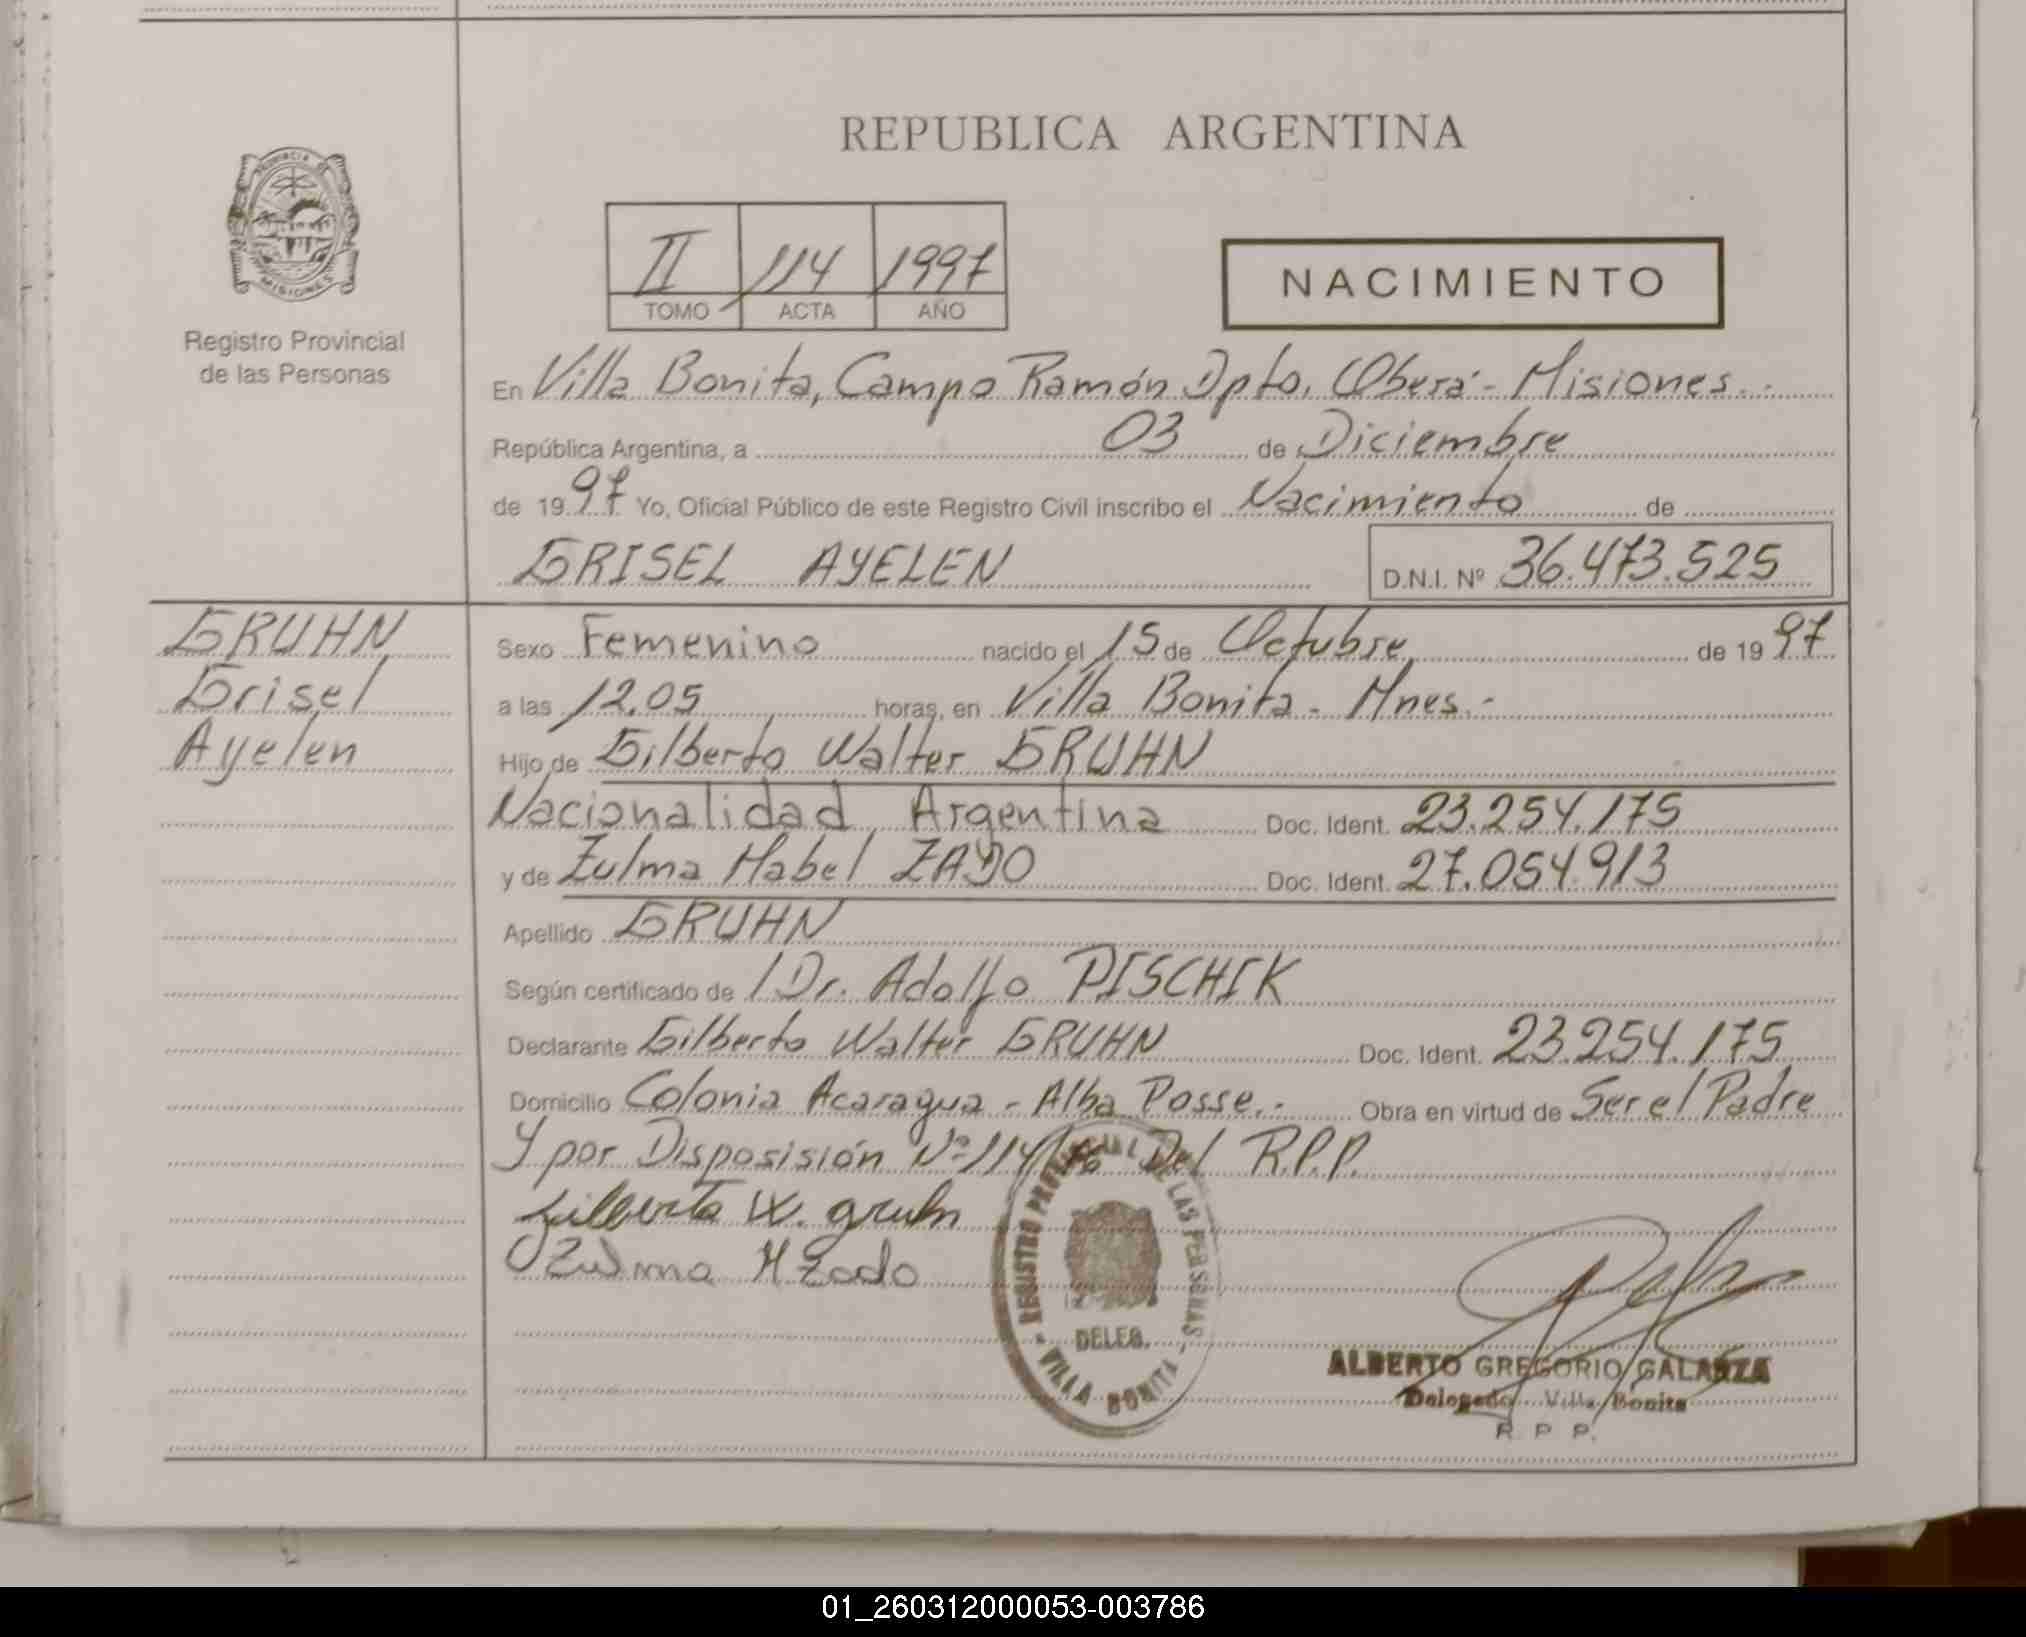 REPUBLICA ARGENTINA
PROVINCIA DE
MISIONES
Registro Provincial
de las Personas
II 114 1997
TOMO ACTA AÑO
NACIMIENTO
En Villa Bonita, Campo Ramón Dpto. Oberá - Misiones.-
República Argentina, a 03 de Diciembre
de 1997 Yo, Oficial Público de este Registro Civil inscribo el Nacimiento de
GRISEL AYELEN D.N.I. Nº 36.473.525
GRUHN
Grisel
Ayelen
Sexo Femenino nacido el 15 de Octubre de 1997
a las 12.05 horas, en Villa Bonita - Mnes.-
Hijo de Gilberto Walter GRUHN
Nacionalidad Argentina Doc. Ident. 23.254.175
y de Zulma Mabel ZADO Doc. Ident. 27.054.913
Apellido GRUHN
Según certificado de Dr. Adolfo PISCHIK
Declarante Gilberto Walter GRUHN Doc. Ident. 23.254.175
Domicilio Colonia Acaragua - Alba Posse.- Obra en virtud de Ser el Padre
Y por Disposición Nº 114/ Del R.P.P.
Gilberto W. gruhn
Zulma M Zado
REGISTRO PROVINCIAL DE LAS PERSONAS
DELEG.
VILLA BONITA
ALBERTO GREGORIO GALARZA
Delegado Villa Bonita
R. P. P.
01_260312000053-003786